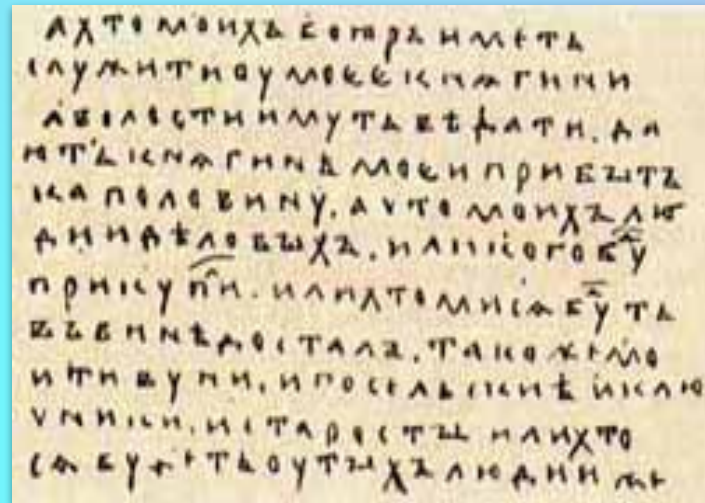 а хто моихъ боꙗръ иметь
служити оу моее кнѧгини
а волости имуть вѣдати. да
ють кнѧгинѣ моеи прибытъ
ка половину. а что моихъ лю
дии дѣловыхъ. или кого буⷣ
прикупиⷧ. или хто ми сѧ буⷣть
въ винѣ досталъ. тако же мо
и тивуни. и посельскиѣ и клю
чники. и старосты или хто
сѧ будеть оу тыхъ людии же